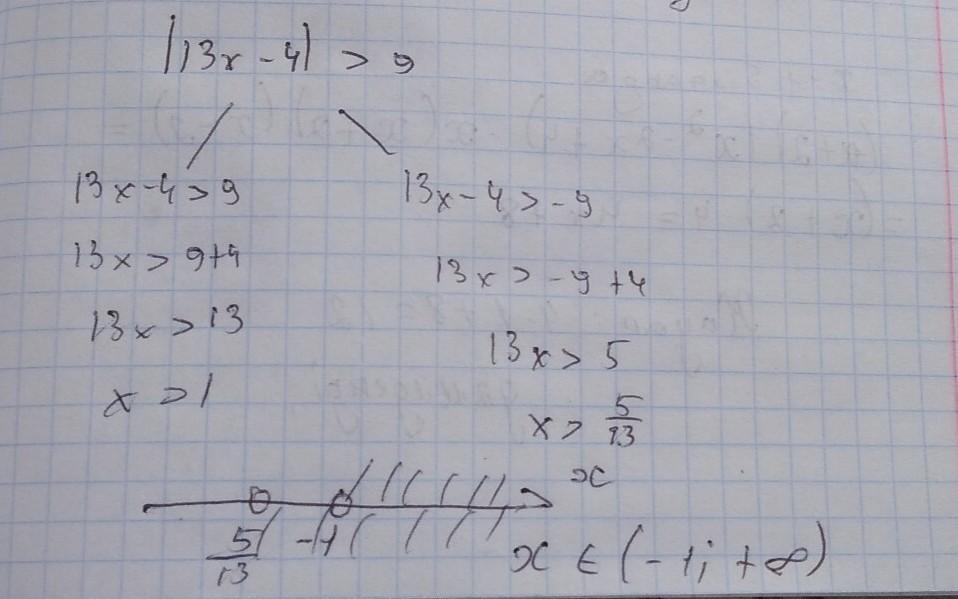 |13x-4| > 9
13x-4>9
13x-4>-9
13x > 9+4
13x>-9+4
13x>13
13x>5
x>1
x> 5/13
x
5/13 -1
x ∈ (-1; +∞)